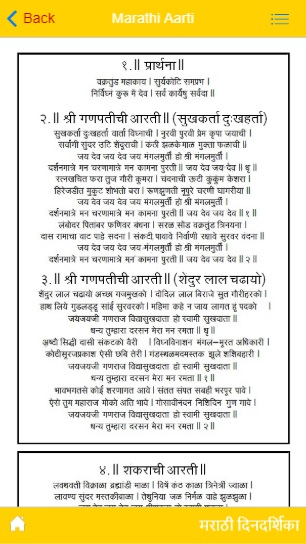 Back
Marathi Aarti
१.॥ प्रार्थना॥
वक्रतुंड महाकाय । सुर्यकोटि समप्रभ ।
निर्विघ्न कुरू मे देव । सर्व कार्येषु सर्वदा ॥
२.॥ श्री गणपतीची आरती॥ (सुखकर्ता दुःखहर्ता)
सुखकर्ता दुःखहर्ता वार्ता विघ्नाची । नुरवी पुरवी प्रेम कृपा जयाची ।
सर्वांगी सुंदर उटि शेंदुराची । कंठी झळके माळ मुक्ता फळाची ॥
जय देव जय देव जय मंगलमुर्ती हो श्री मंगलमुर्ती ।
दर्शनमात्रे मन चरणामात्रे मन कामना पुरती ॥ जय देव जय देव ॥ धृ ॥
रत्नखचित फरा तुज गौरी कुमरा । चंदनाची ऊटी कुकुंम केशरा ।
हिरेजडीत मुकुट शोभतो बरा । रूणझुणती नूपुरे चरणी घागरीया ॥
जय देव जय देव जय मंगलमुर्ती हो श्री मंगलमुर्ती ।
दर्शनमात्रे मन चरणामात्रे मन कामना पुरती ॥ जय देव जय देव ॥ १ ॥
लंबोदर पितांबर फणिवर बंधना । सरळ सोंड वक्रतुंड त्रिनयना ।
दास रामाचा वाट पाहे सदना । संकटी पावावे निर्वाणी रक्षावे सुरवर वंदना ॥
जय देव जय देव जय मंगलमुर्ती हो श्री मंगलमुर्ती ।
दर्शनमात्रे मन चरणामात्रे मन कामना पुरती ॥ जय देव जय देव ॥ २ ॥
३.॥ श्री गणपतीची आरती॥ (शेंदुर लाल चढायो)
शेंदुर लाल चढायो अच्छा गजमुखको । दोंदिल लाल बिराजे सुत गौरीहरको ।
हाथ लिये गुडलड्डू सांई सुरवरको । महिमा कहे न जाय लागत हूं पदको ।
जयजयजी गणराज विद्यासुखदाता हो स्वामी सुखदाता ॥
धन्य तुम्हारा दरसन मेरा मन रमता ॥ धृ ॥
अष्टौ सिद्धी दासी संकटको बैरी । विघ्नविनाशन मंगल-मूरत अधिकारी ।
कोटीसूरजप्रकाश ऐसी छबि तेरी । गंडस्थळमदमस्तक झूले शशिबहारी ।
जयजयजी गणराज विद्यासुखदाता हो स्वामी सुखदाता ॥
धन्य तुम्हारा दरसन मेरा मन रमता ॥ १ ॥
भावभगतसे कोई शरणागत आवे । संतत संपत सबही भरपुर पावे ।
ऐसे तुम महाराज मोको अति भावे । गोसावीनंदन निशिदिन गुण गावे ।
जयजयजी गणराज विद्यासुखदाता हो स्वामी सुखदाता ॥
धन्य तुम्हारा दरसन मेरा मन रमता ॥ २ ॥
४.॥ शंकराची आरती॥
लवथवती विक्राळा ब्रह्मांडी माळा । विषें कंठ काळा त्रिनेत्री ज्वाळा ।
लावण्य सुंदर मस्तकीबाळा । तेथुनिया जळ निर्मळ वाहे झुळझुळा ।
मराठी दिनदर्शिका